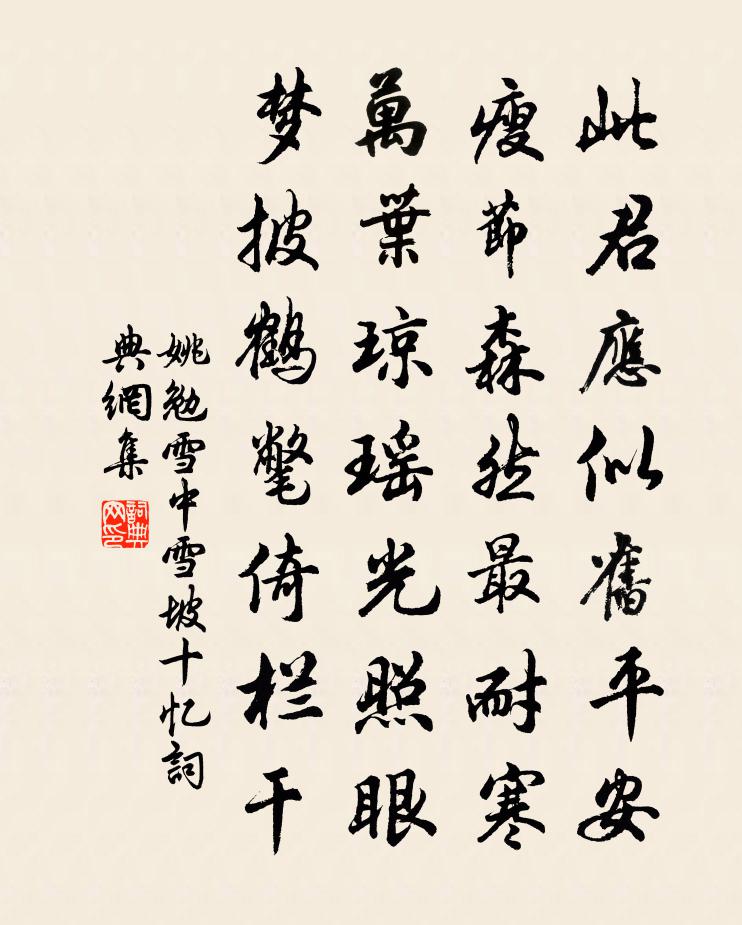 此君應似舊平安
瘦節森然最耐寒
萬葉琼瑶光照眼
梦披鶴氅倚栏干
姚勉雪中雪坡十忆詞
典網集
詞典
网印